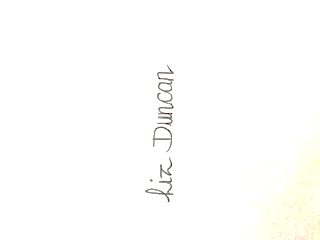 Liz Duncan